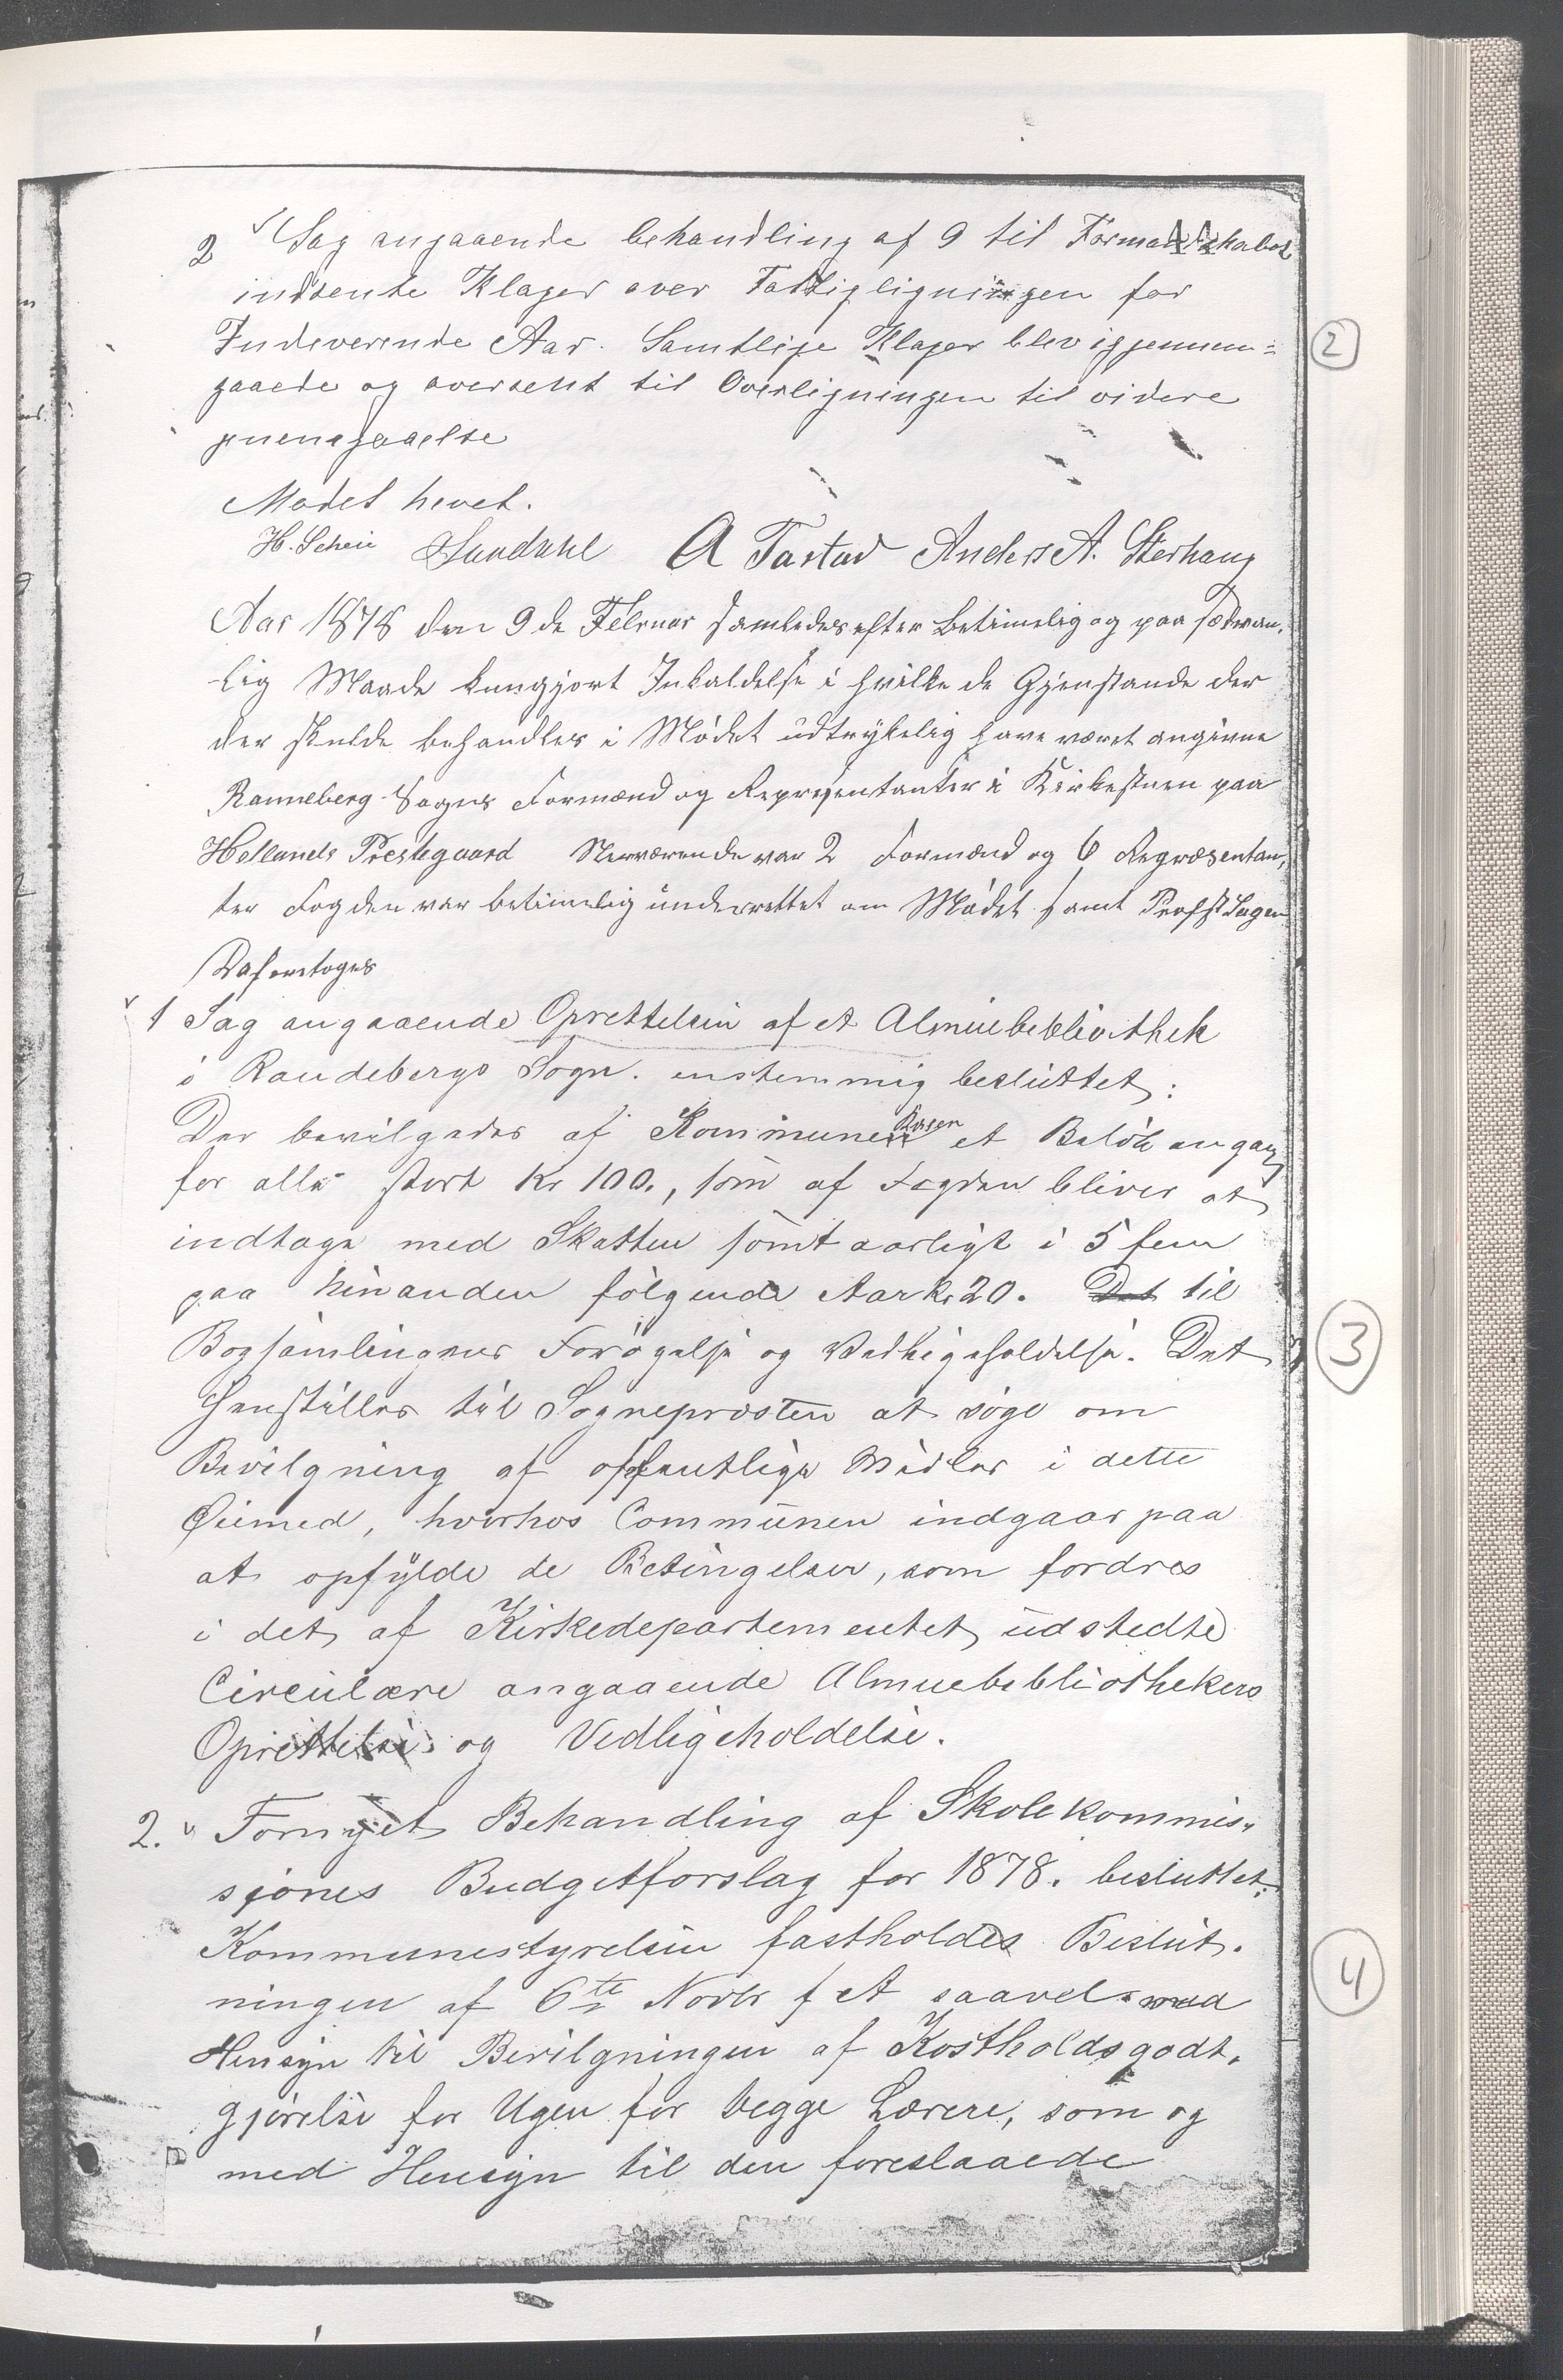 2 Sag angaaende behandling af 9 til Formandskabet
indsente Klager over Fattigligningen for
Indeverende Aar. Samtlige Klager blev igjennem=
gaaede og oversent til Overligningen til videre
Mødet hevet.
H. Scheie Sundahl A Tastad Anders A.
Aar 1878 den 9de Februar samledes efter betimelig og paa sædvan,
lig Maade kungjort Inkaldelse i hvilke de Gjenstande der
der skulde behandles i Mødet üdtrykelig have været angivne
Ranneberg Sogns Formænd og Representanter i Kirkestuen paa
Hellands Prestegaard Nerværende var 2 Formænd og 6 Repræsentan,
ter Fogden var betimelig ünderrettet om Mødet samt
Da foretoges
1 Sag angaaende Oprettelsen af et Almuebebliothek
i Randebergs Sogn. enstemmig beslüttet:
Der bevilgedes af Kommunen Kasen et Beløb en gang
for alle stort Kr 100., som af Fogden bliver at
indtage med Skatten sømt aarligt i 5 fem
paa hinanden følgende Aar Kr 20. Det til
Bogsamlingens Forøgelse og Vedligeholdelse. Det
henstilles til Sognepresten at søge om
Bevilgning af offentlige Midler i dette
Øiemed, hvorhos Communen indgaar paa
at opfylde de Betingelser, som fordres
i det af Kirkedepartementet üdstedte
Circulære angaaende Almuebebliothekers
Oprettelse og Vedligeholdelse.
2. Fornyet Behandling af Skolekommis,
sjones Budgetforslag for 1878. besluttet:
Kommunestyrelsen fastholdes Beslut.
ningen af 6te Novbr f A saavel med
Hensyn til Bevilgningen af Kostholdsgodt.
gjørelse for Ugen for begge Lærere, som og
med Hensyn til den foreslaaede
2
3
4